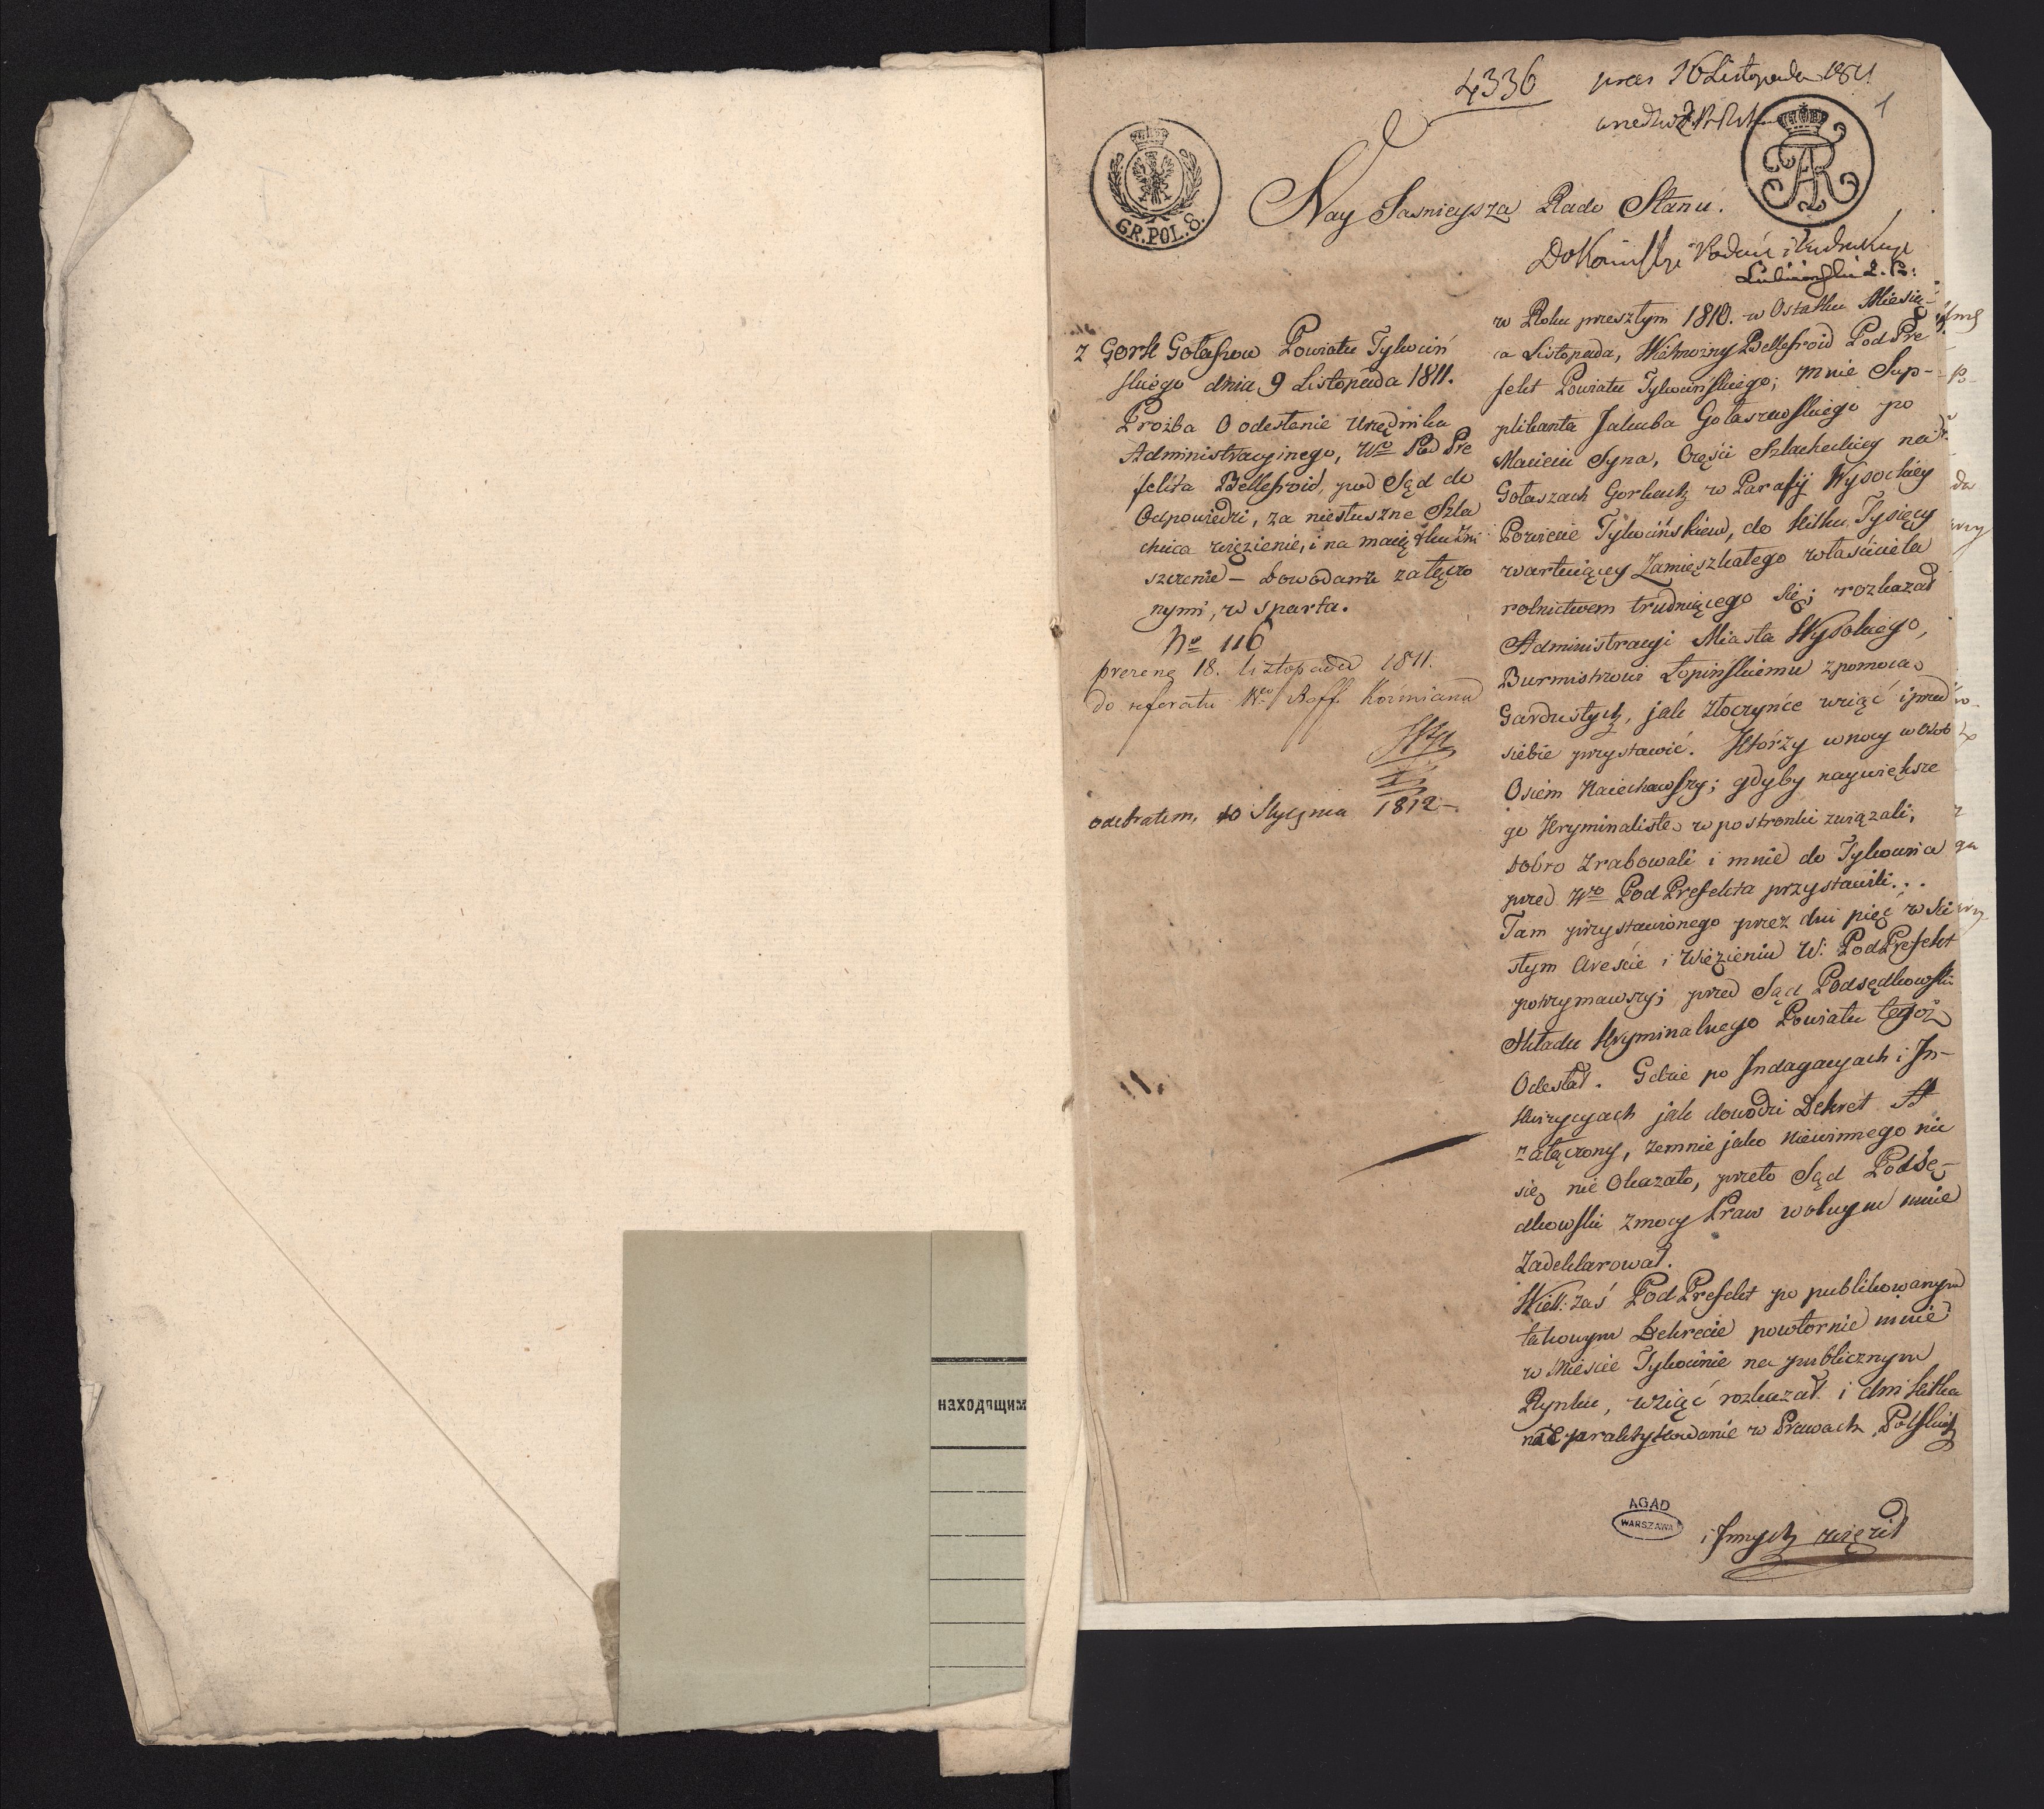 4336
16 Listopada 1811
1
GR.POL.8.
AR
Nay Jasnieysza Rado Stanu.
Lubieński
z Gorsk Gołaszow Powiatu Tykociń
skiego dnia 9 Listopada 1811.
Prożba O odesłanie Urzędnika
Administracyjnego, Wgo Pod Pre
fekta Bellefroid, pod Sąd do
Odpowiedzi, za niesłuszne Szla
chcica więzienie, i na maiątku Zni
szczenie – Dowodami załączo
nymi, wsparta.
No 116
prezene 18. listopada 1811.
do referatu Reff. Koźmiana
odebrałem, 10 Stycznia 1812 –
w Roku przeszłym 1810. w Ostatku Miesią-
ca Listopada, Wielmożny Bellefroid Pod Pre
fekt Powiatu Tykocińskiego; mnie Sup-
plikanta Jakuba Gołaszewskiego po
Macieiu Syna, Części Szlacheckiey na
Gołaszach Gorkach w Parafij Wysockiey
Powiecie Tykocińskiem, do kilku Tysięcy
wartuiącey Zamięszkałego właściciela
rolnictwem trudniącego się; rozkazał
Administracyi Miasta Wysokiego,
Burmistrzowi Łopińskiemu z pomocą
Gardystych, jak złoczyńce wziąć i przed
siebie przystawić. Którzy w nocy w Osob
Ośiem Naiechawszy; gdyby naywiększe
go Kryminalistę w postronki związali,
Dobro Zrabowali i mnie do Tykocina
przed Wgo Pod Prefekta przystawili...
Tam przystawionego przez dni pięć w ści
słym Areście i Więzieniu W: Pod Prefekt
potrzymawszy; przed Sąd Podsędkowski
Składu Kryminalnego Powiatu tegoż
Odesłał. Gdzie po Indagacyach i In-
kwizycyach jak dowodzi Dekret A
załączony, zemnie jako Niewinnego nic
się nie Okazało, przeto Sąd Podsę-
dkowski z mocy Praw wolnym mnie
Zadeklarował.
Wiel: zaś Pod Prefekt po publikowanym
takowym Dekrecie powtornie mnie
w Mieście Tykocinie na publicznym
Rynku, wziąć rozkazał i dni kilka
nad praktykowanie w Prawach Polskich
i Innych więził
AGAD
WARSZAWA
находящим